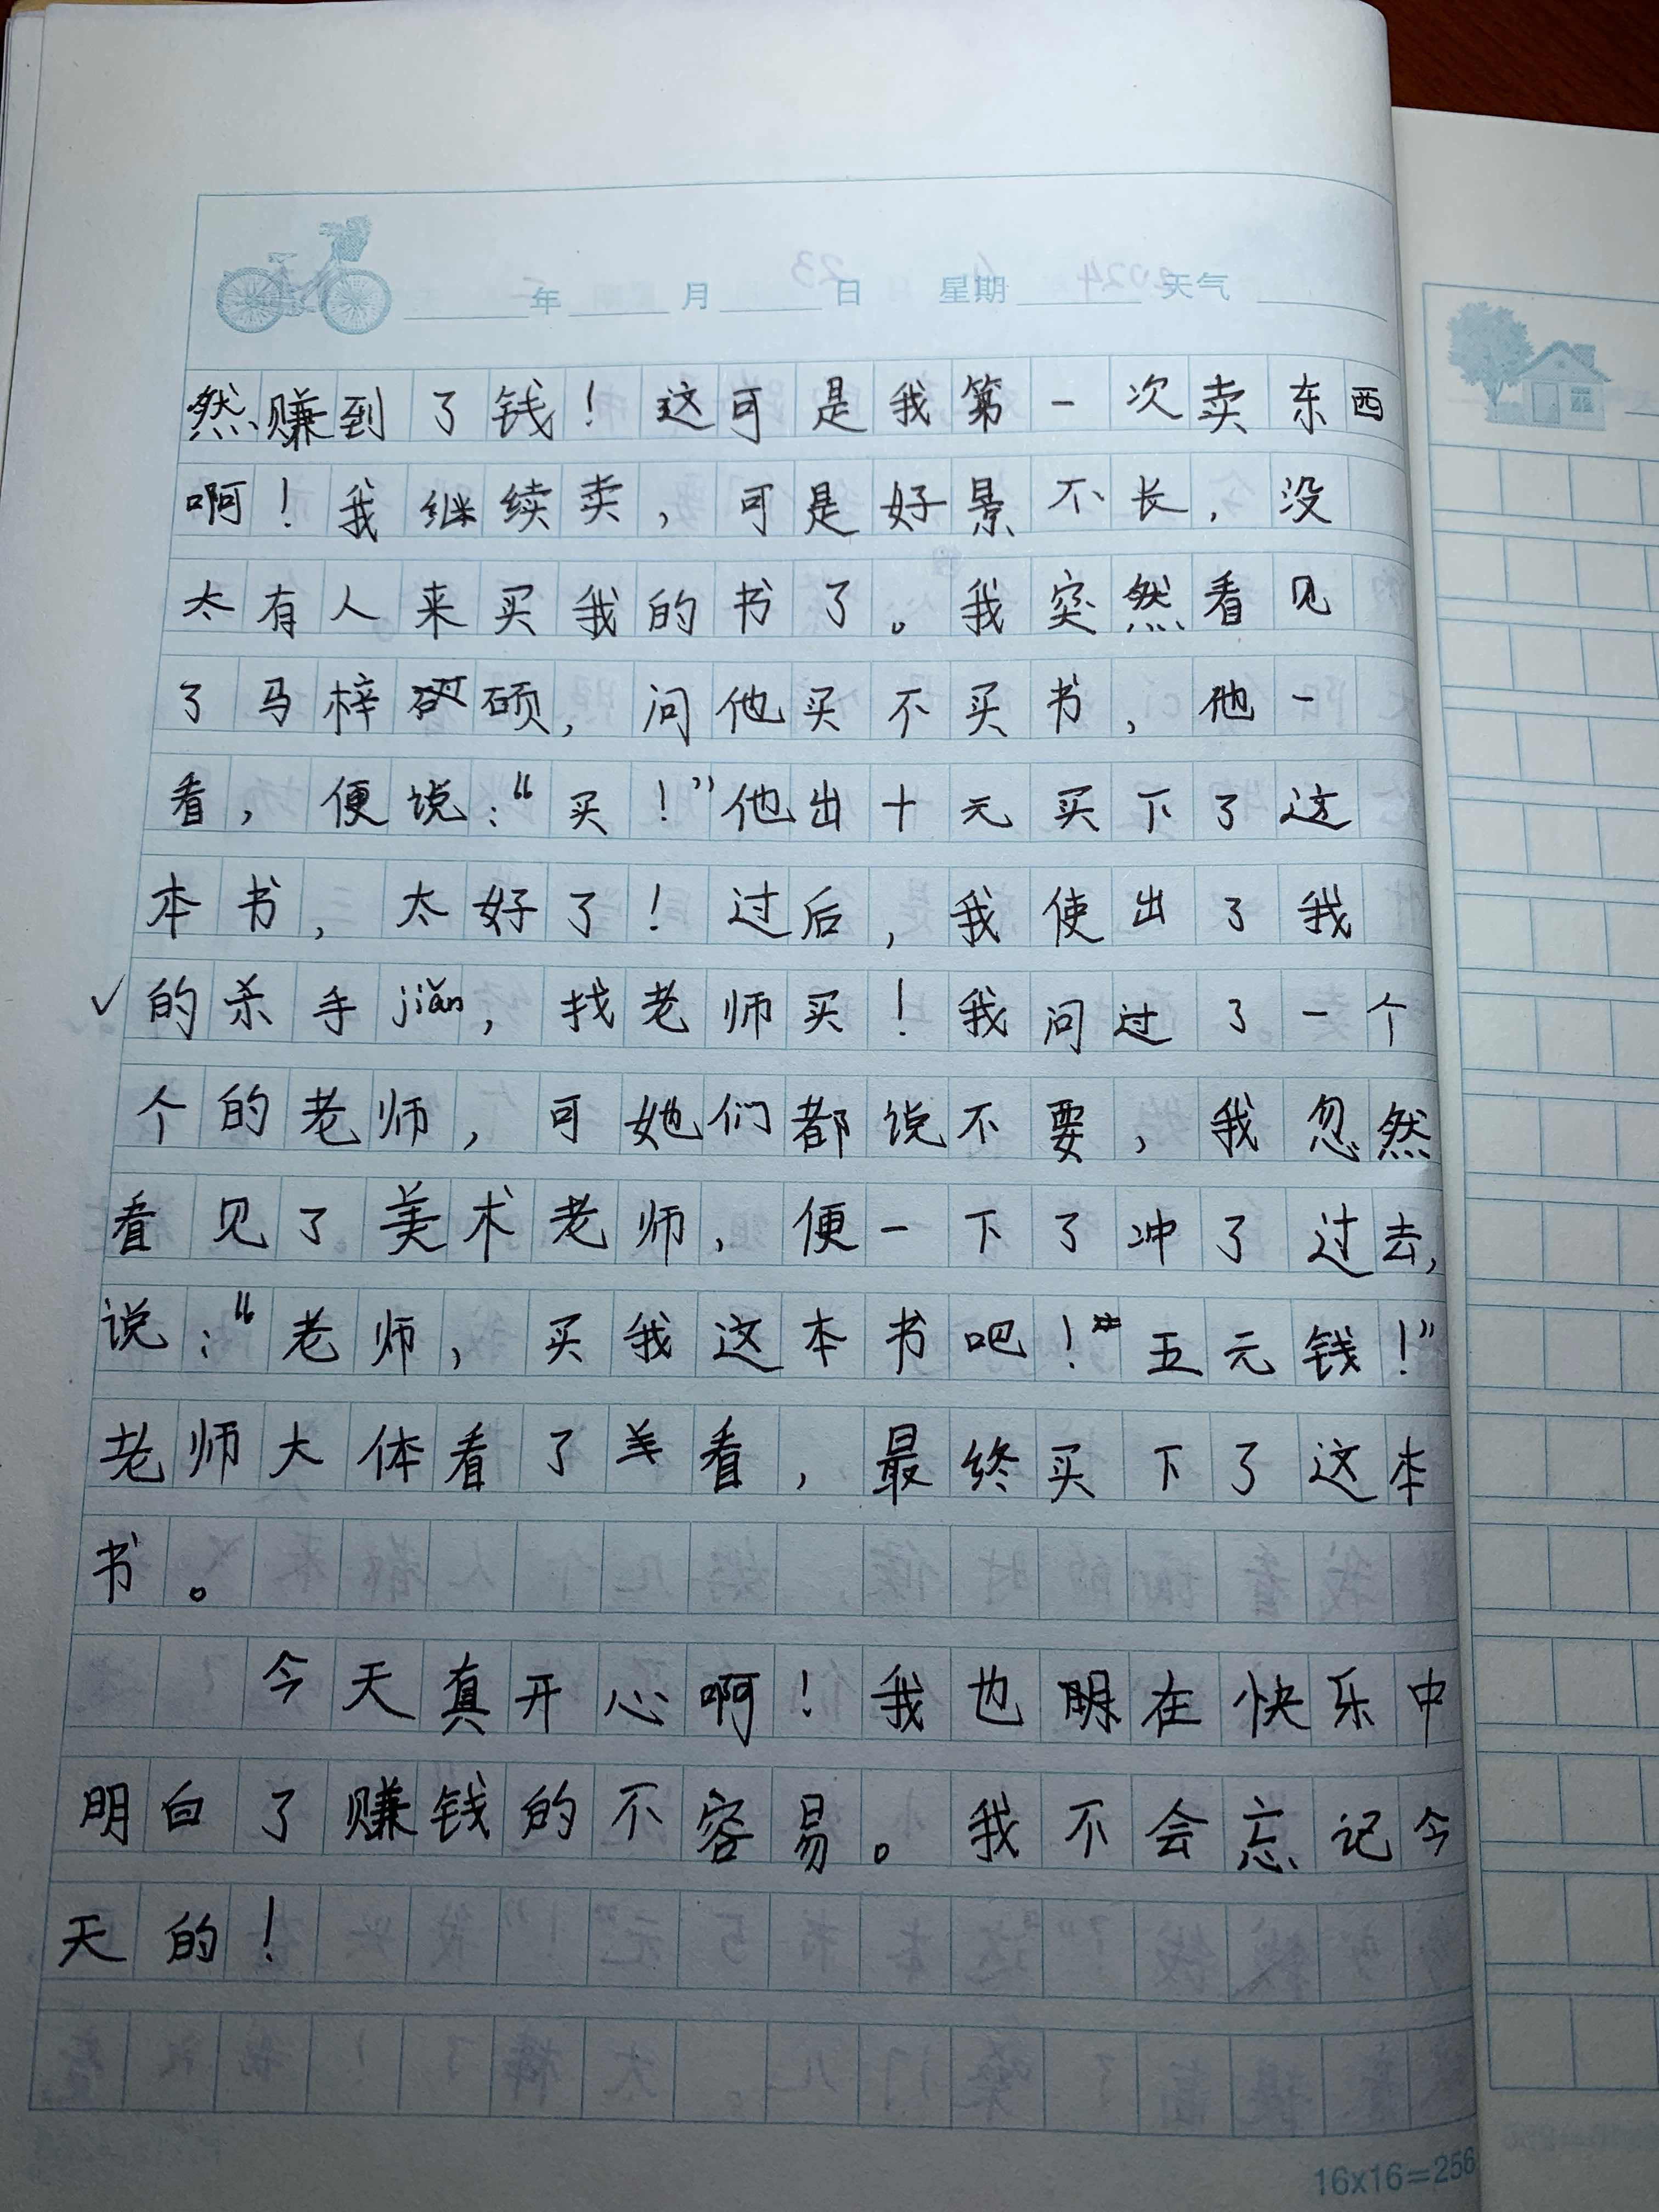 年 月 日 星期 天气
然赚到了钱！这可是我第一次卖东西
啊！我继续卖，可是好景不长，没
太有人来买我的书了。我突然看见
了马梓硕，问他买不买书，他一
看，便说：“买！”他出十元买下了这
本书，太好了！过后，我使出了我
✓的杀手jiǎn，找老师买！我问过了一个
个的老师，可她们都说不要，我忽然
看见了美术老师，便一下了冲了过去，
说：“老师，买我这本书吧！五元钱！”
老师大体看了看，最终买下了这本
书。
今天真开心啊！我也在快乐中
明白了赚钱的不容易。我不会忘记今
天的！
16x16=256